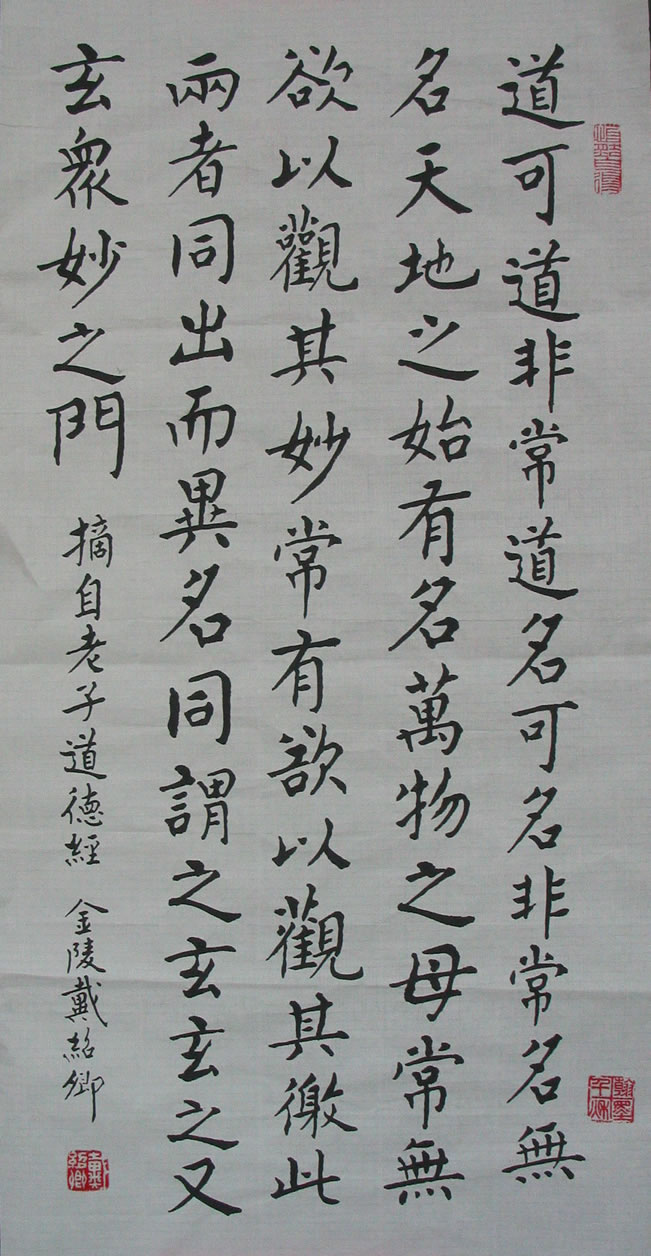 道可道非常道名可名非常名無
名天地之始有名萬物之母常無
欲以觀其妙常有欲以觀其徼此
兩者同出而異名同謂之玄玄之又
玄衆妙之門
摘自老子道德經 金陵戴紹卿
戴紹卿